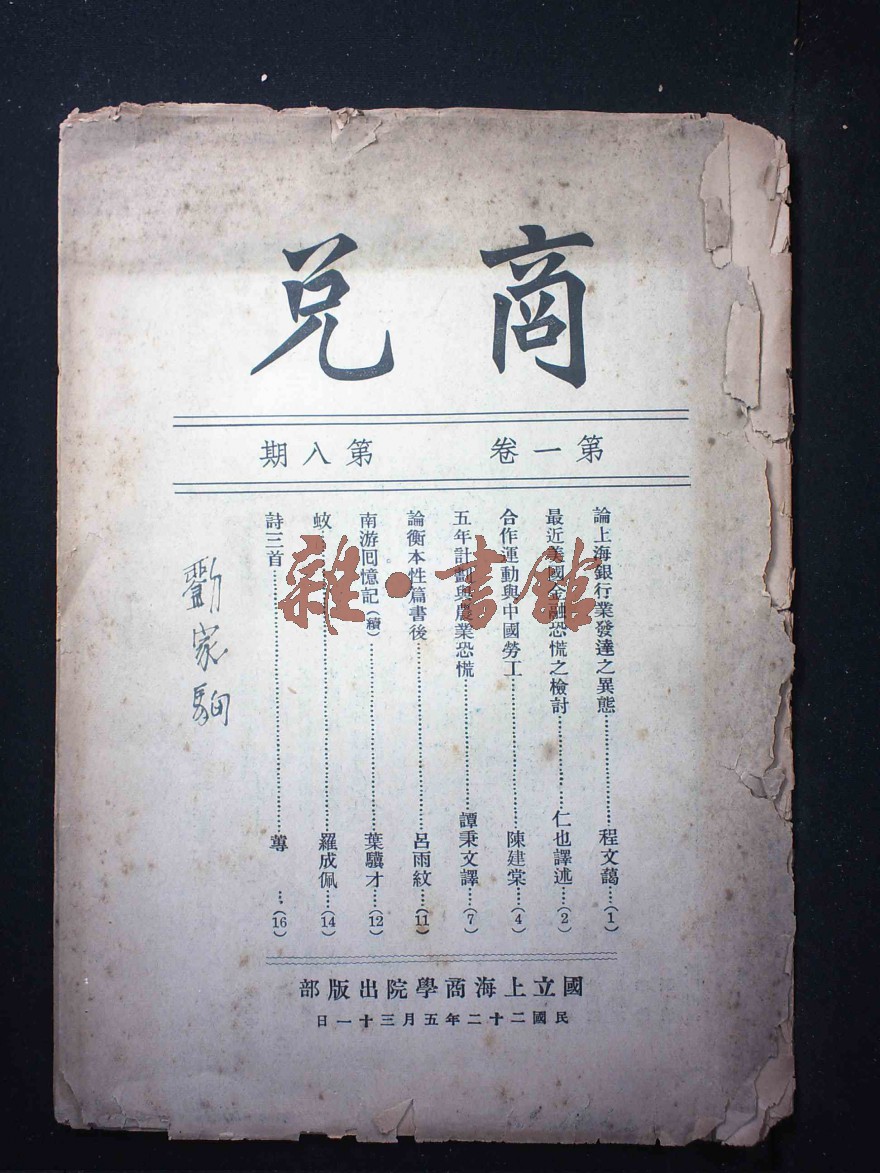 商兌
第一卷 第八期
論上海銀行業發達之異態……程文藹…(1)
最近美國金融恐慌之檢討……仁也譯述…(2)
合作運動與中國勞工……陳建棠…(4)
五年計劃與農業恐慌……譚秉文譯…(7)
論衡本性篇書後……呂雨紋…(11)
南游回憶記(續)……葉驥才…(12)
蚊……羅成佩…(14)
詩三首……蓴…(16)
國立上海商學院出版部
民國二十二年五月三十一日
劉家駒
雜·書館